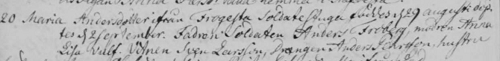 20 Maria Andersdotter ifrån Frogesta Soldatestuga föddes d 29 augusti döp
tes d 2 September. Fadren Soldaten Anders Froberg, modren Anna
Lisa Vittn. Sven Larsson, drängen Anders hustru